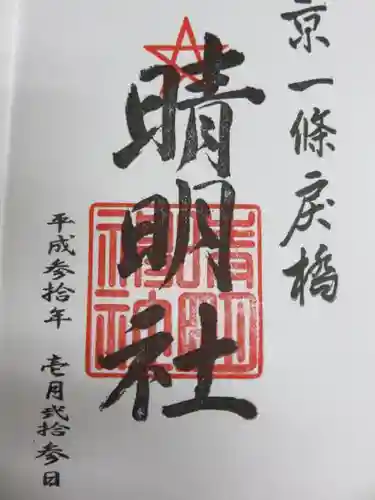 京一條戻橋
晴明社
平成参拾年 壱月弐拾参日
晴明神社